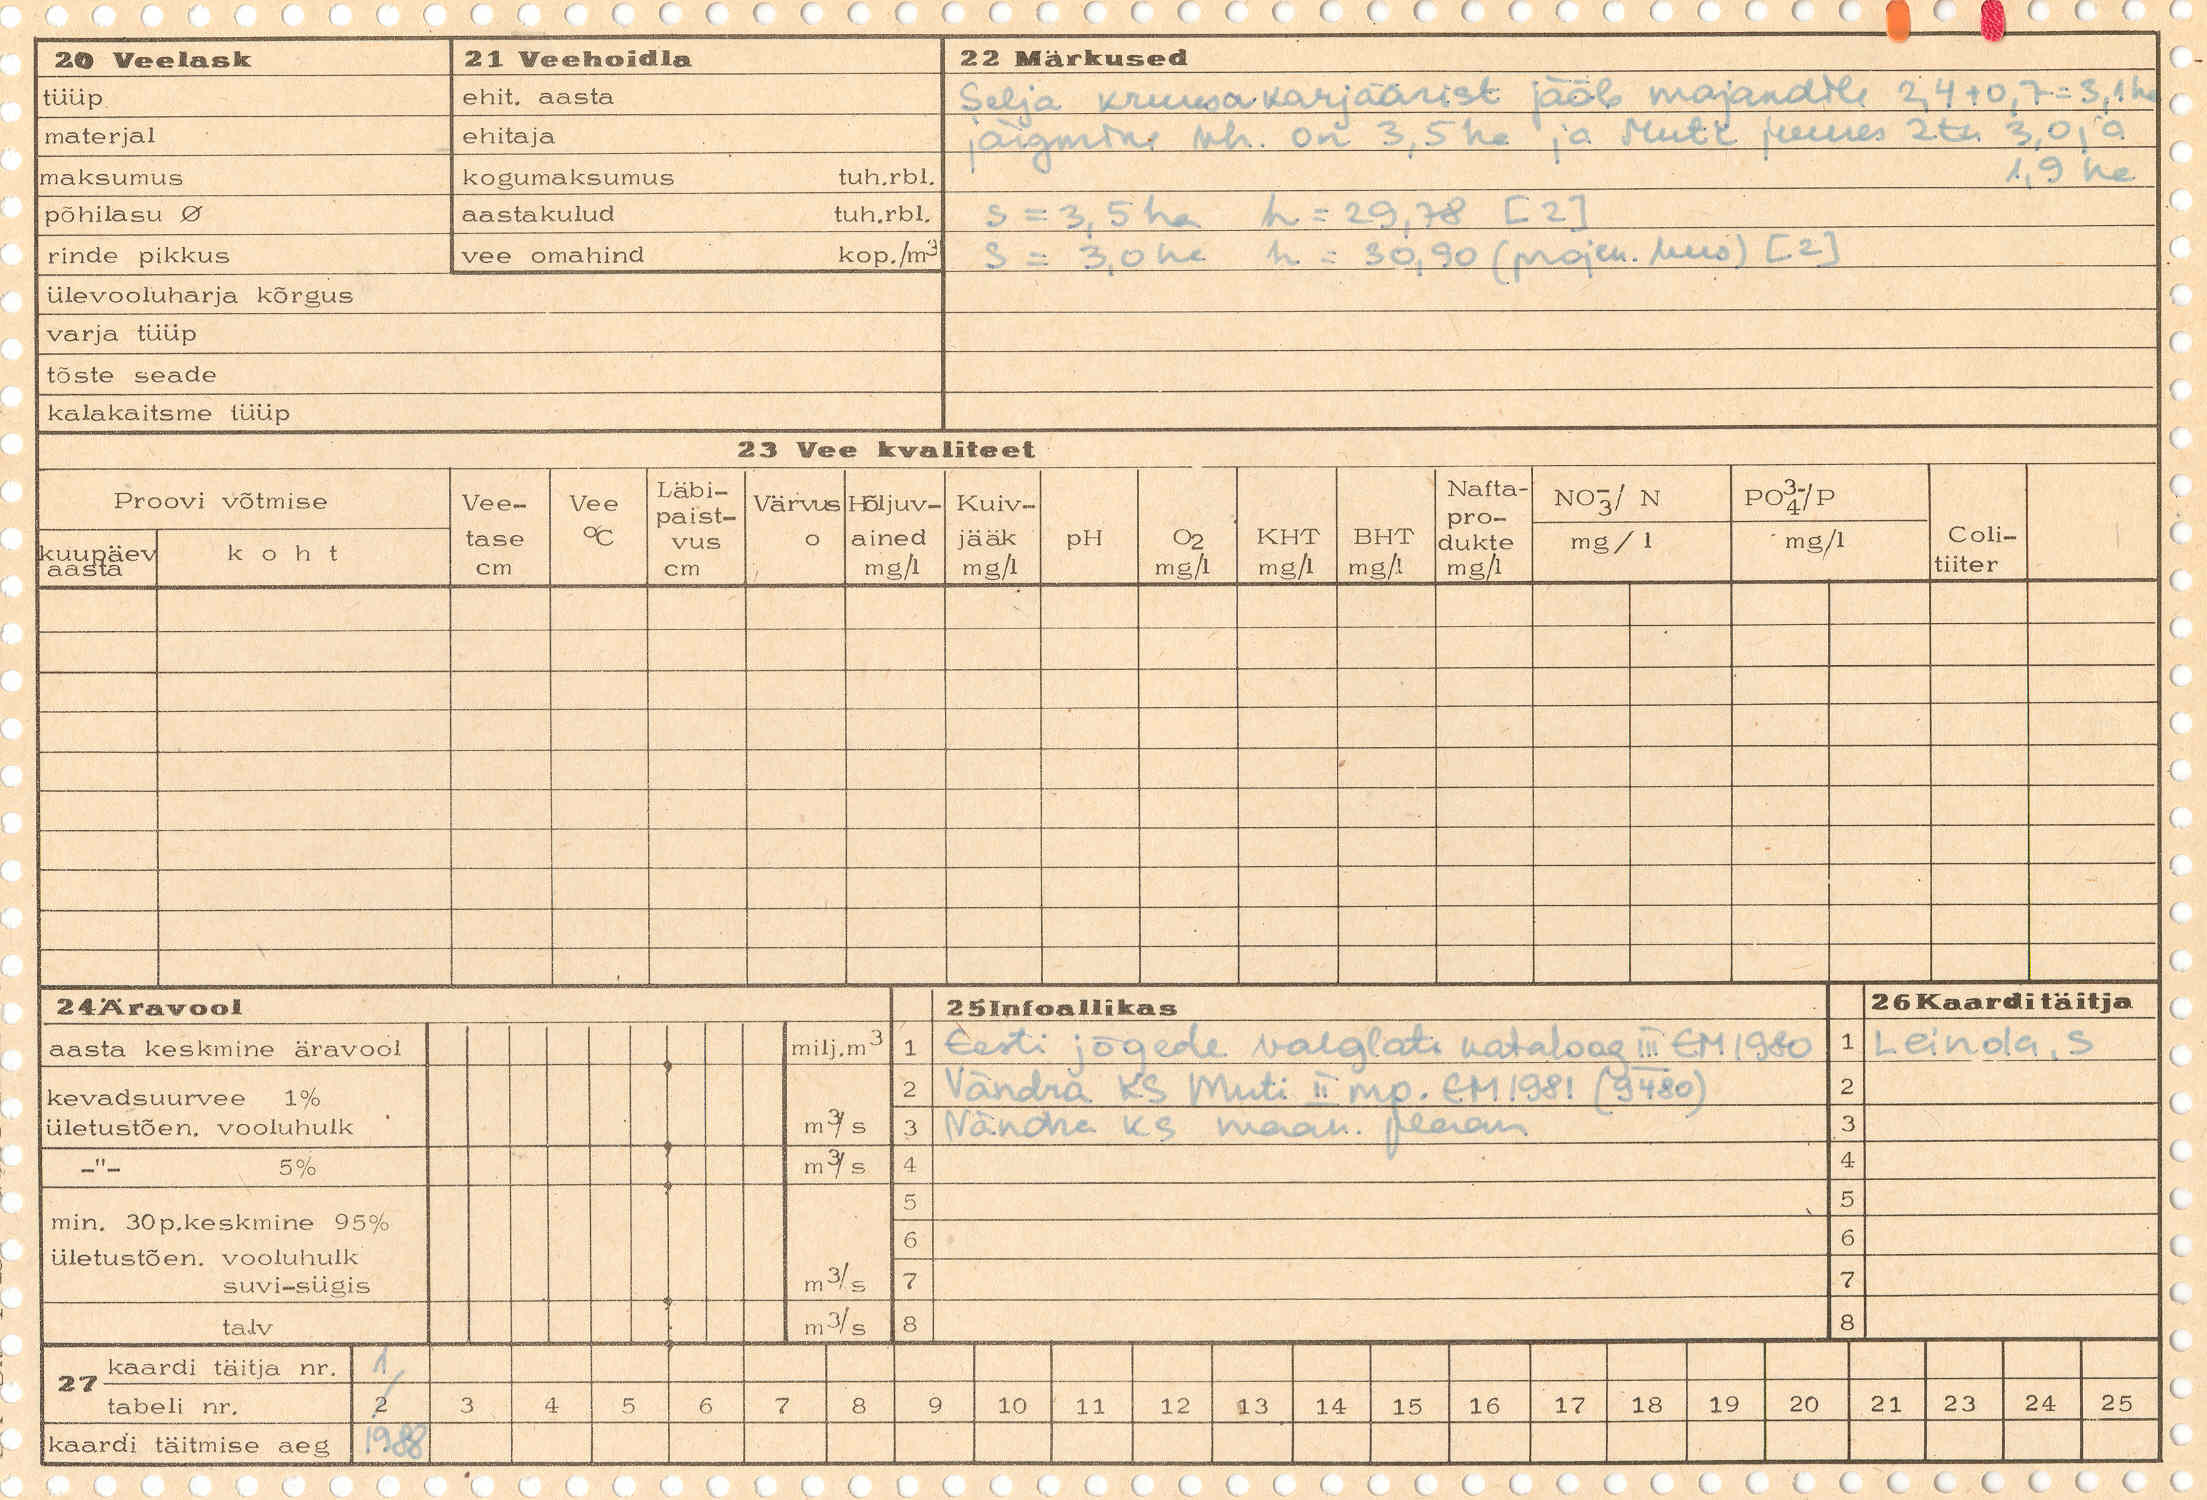 20 Veelask
tüüp
materjal
maksumus
põhilasu Ø
rinde pikkus
ülevooluharja kõrgus
varja tüüp
tõste seade
kalakaitsme tüüp
21 Veehoidla
ehit. aasta
ehitaja
kogumaksumus tuh.rbl.
aastakulud tuh.rbl.
vee omahind kop./m³
22 Märkused
Selja kruusakarjäärist jääb majandile 2,4+0,7=3,1ha
järgmine on 3,5 ha ja Muti juures 2 tk 3,0 ja
1,9 ha
S = 3,5 ha h = 29,78 [2]
S = 3,0 ha h = 30,90 [2]
23 Vee kvaliteet
Proovi võtmise
kuupäev aasta
koht
Vee-tase cm
Vee °C
Läbi-paist-vus cm
Värvus o
Hõljuv-ained mg/l
Kuiv-jääk mg/l
pH
O2 mg/l
KHT mg/l
BHT mg/l
Nafta-pro-dukte mg/l
NO3-/ N mg/l
PO4 3-/P mg/l
Coli-tiiter
24 Äravool
aasta keskmine äravool milj.m³
kevadsuurvee 1%
ületustõen. vooluhulk m³/s
-"- 5% m³/s
min. 30p.keskmine 95%
ületustõen. vooluhulk
suvi-sügis m³/s
talv m³/s
25 Infoallikas
1 Eesti jõgede valglate kataloog III EM 1980
2 Vändra KS Muti II mp. EM 1981 (9480)
3 Vändra KS maan. plaan
4
5
6
7
8
26 Kaarditäitja
1 Leinola, S
2
3
4
5
6
7
8
27 kaardi täitja nr. 1
tabeli nr. 2 3 4 5 6 7 8 9 10 11 12 13 14 15 16 17 18 19 20 21 23 24 25
kaardi täitmise aeg 1988